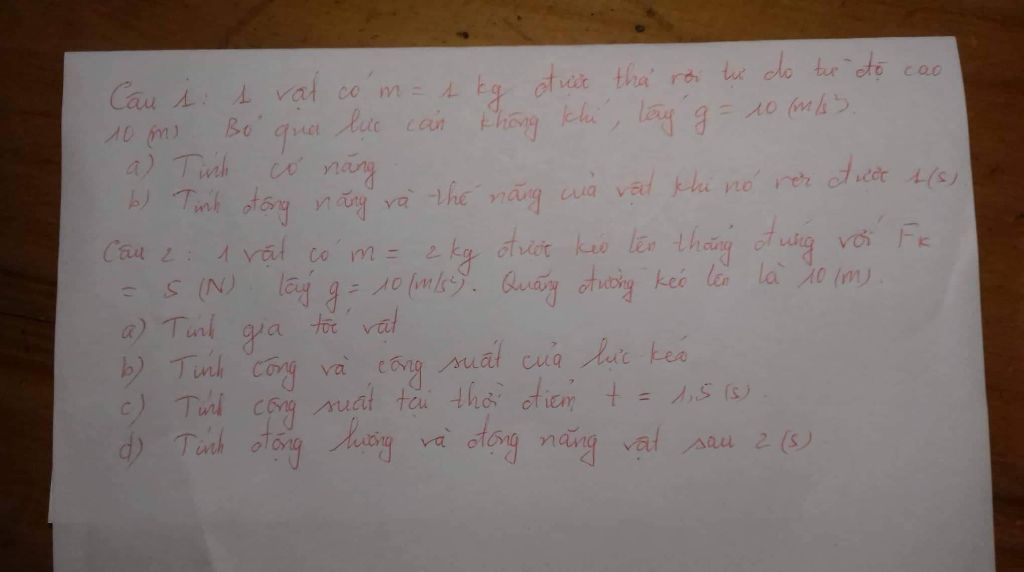 Câu 1: 1 vật có m = 1 kg được thả rơi tự do từ độ cao
10 (m). Bỏ qua lực cản không khí, lấy g = 10 (m/s²).
a) Tính cơ năng
b) Tính động năng và thế năng của vật khi nó rơi được 1(s)
Câu 2: 1 vật có m = 2 kg được kéo lên thẳng đứng với Fk
= 5 (N). lấy g = 10 (m/s²). Quãng đường kéo lên là 10 (m).
a) Tính gia tốc vật
b) Tính công và công suất của lực kéo
c) Tính công suất tại thời điểm t = 1,5 (s).
d) Tính động lượng và động năng vật sau 2 (s)